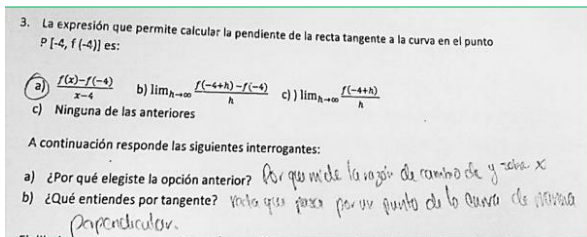 3. La expresión que permite calcular la pendiente de la recta tangente a la curva en el punto
P [-4, f (-4)] es:
a) f(x)-f(-4) / x-4 b) lim h→∞ f(-4+h) -f(-4) / h c) ) lim h→∞ f(-4+h) / h
c) Ninguna de las anteriores
A continuación responde las siguientes interrogantes:
a) ¿Por qué elegiste la opción anterior? Por que mide la razón de cambio de y sobre x
b) ¿Qué entiendes por tangente? recta que pasa por un punto de la curva de
perpendicular.